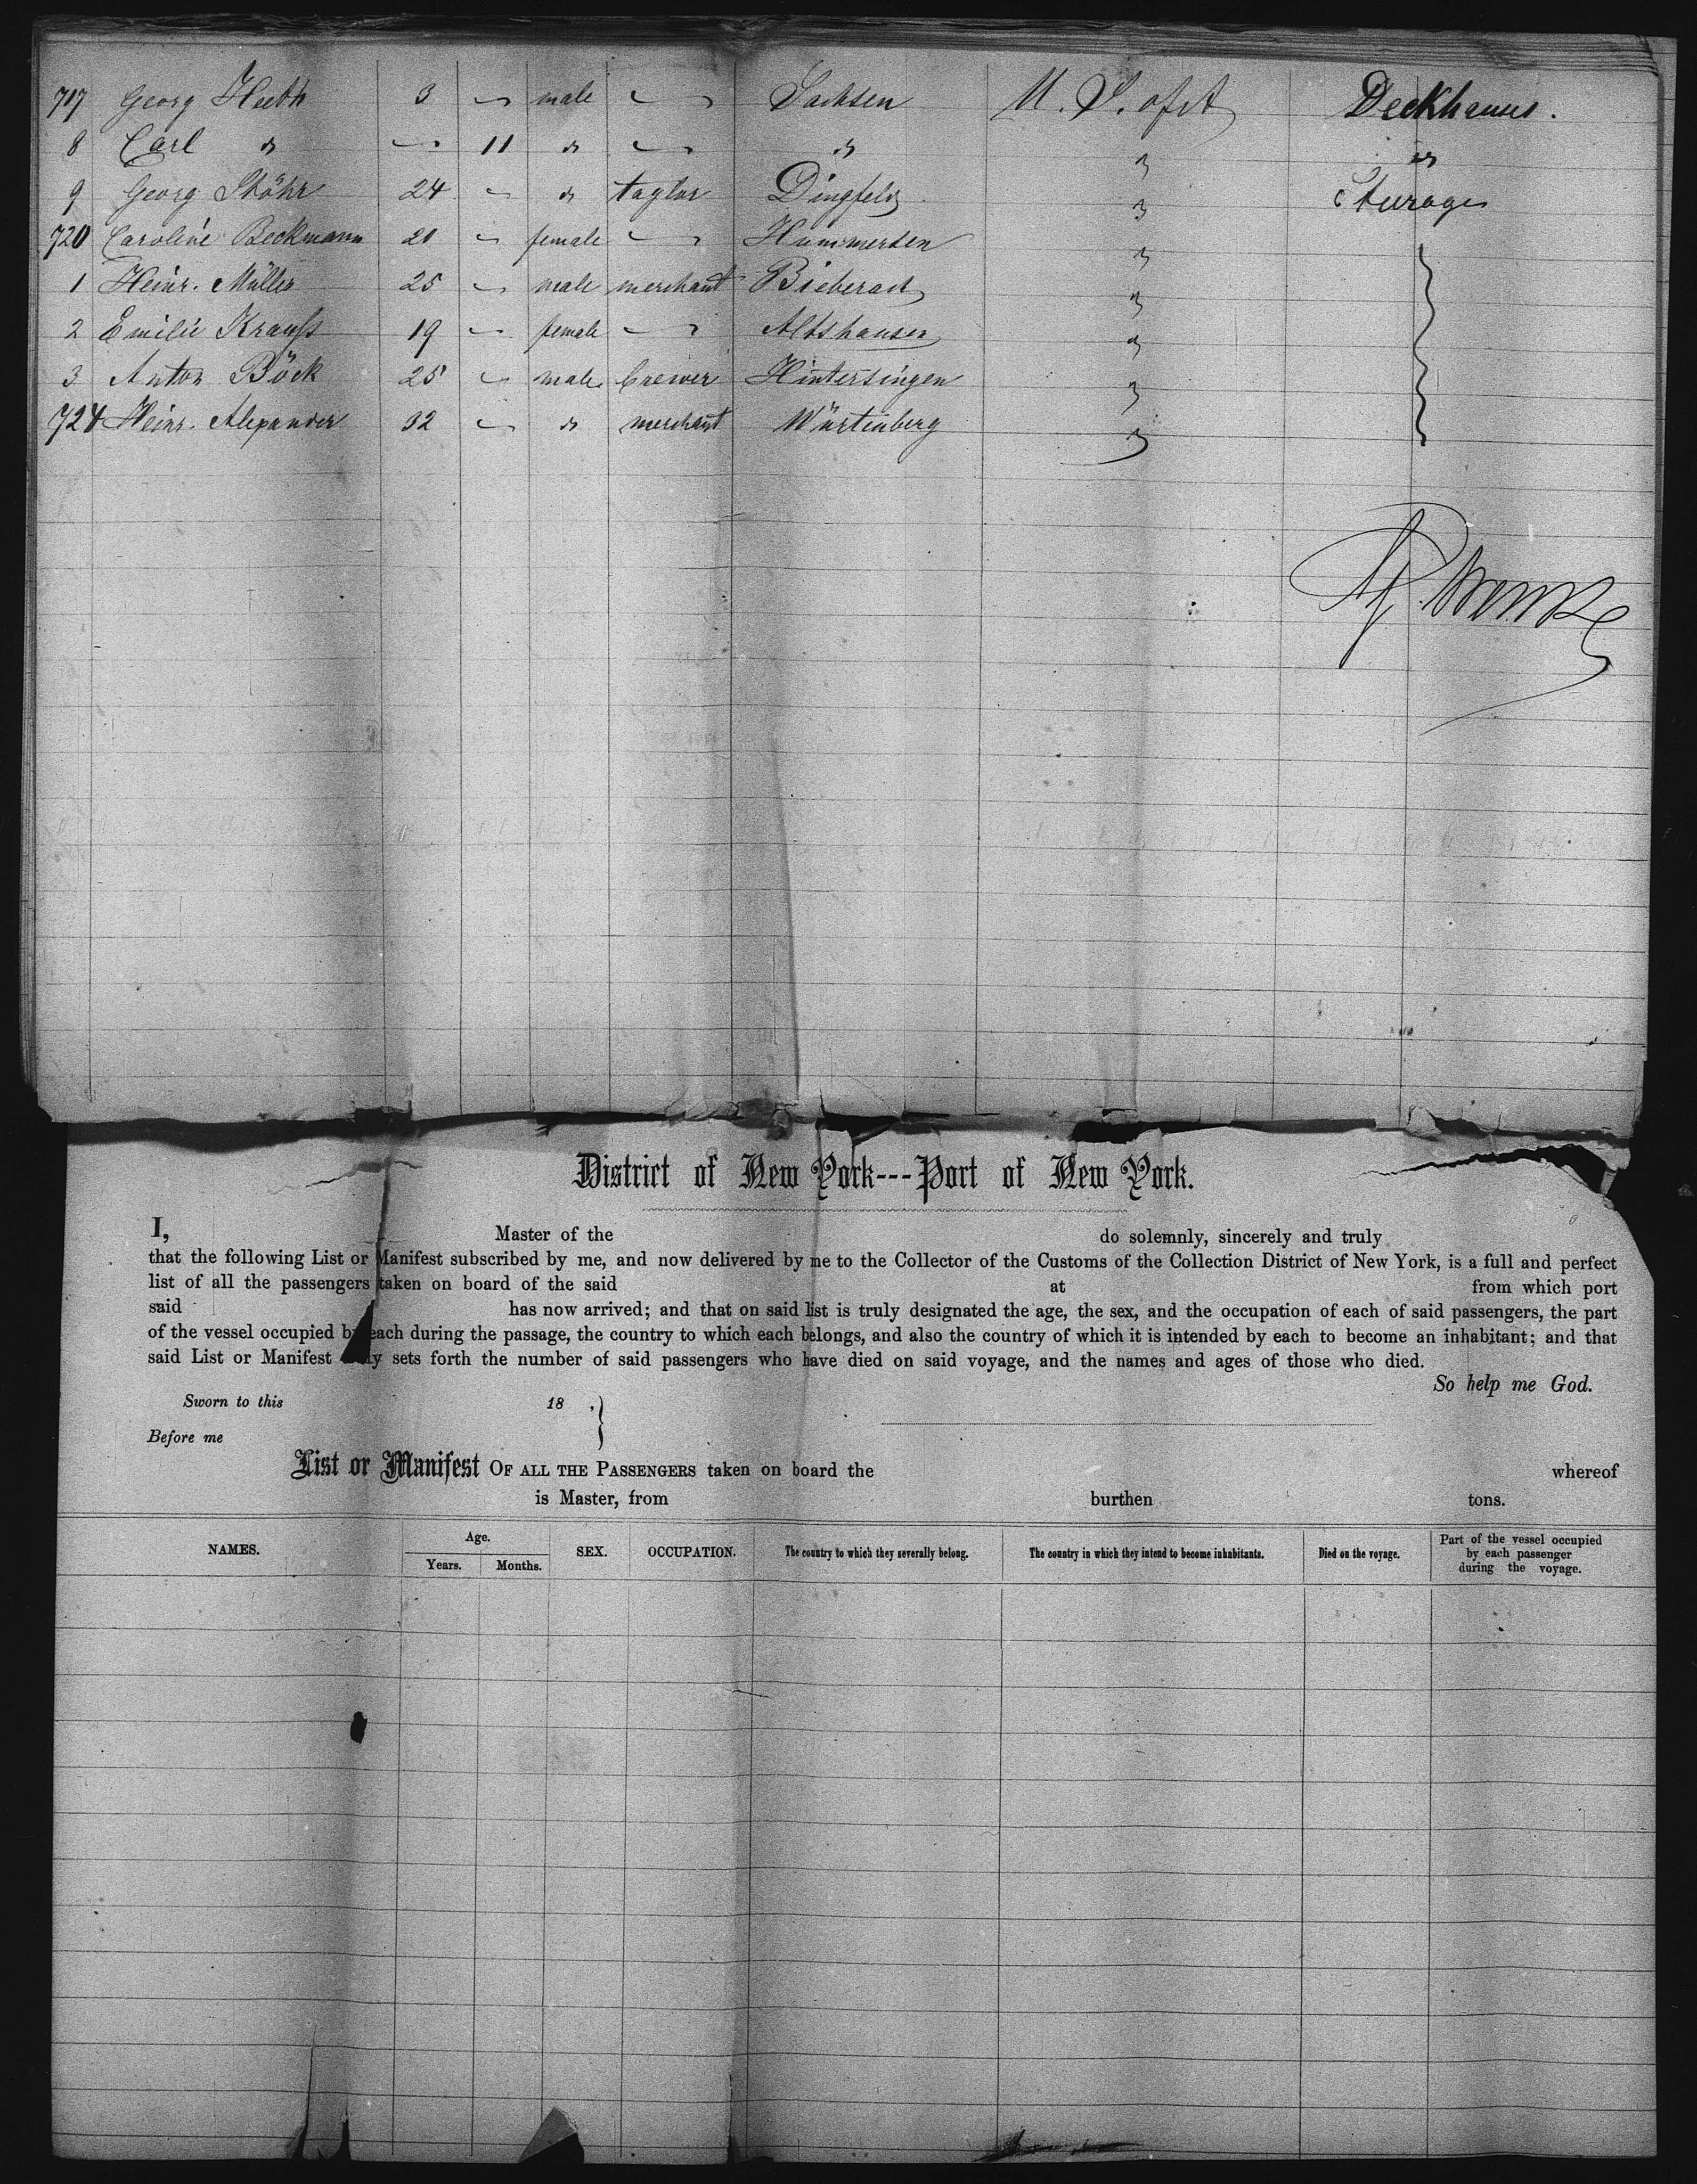 717 Georg Huth 3 male Sachsen U. S. of A Deckhaus.
8 Carl " 11 " " " "
9 Georg Stöhr 24 " taylor Dingfeld " Sturage
720 Caroline Beckmann 20 female Hummersen "
1 Heinr. Müller 25 male merchant Bieberach "
2 Emilie Krauss 19 female Altshausen "
3 Anton Böck 25 male brewer Hintersingen "
724 Heinr. Alexander 32 " merchant Würtenberg "
District of New York---Port of New York.
I, Master of the do solemnly, sincerely and truly
that the following List or Manifest subscribed by me, and now delivered by me to the Collector of the Customs of the Collection District of New York, is a full and perfect
list of all the passengers taken on board of the said at from which port
said has now arrived; and that on said list is truly designated the age, the sex, and the occupation of each of said passengers, the part
of the vessel occupied by each during the passage, the country to which each belongs, and also the country of which it is intended by each to become an inhabitant; and that
said List or Manifest truly sets forth the number of said passengers who have died on said voyage, and the names and ages of those who died.
So help me God.
Sworn to this 18 .
Before me
List or Manifest OF ALL THE PASSENGERS taken on board the whereof
is Master, from burthen tons.
NAMES. Age. Years. Months. SEX. OCCUPATION. The country to which they severally belong. The country in which they intend to become inhabitants. Died on the voyage. Part of the vessel occupied by each passenger during the voyage.